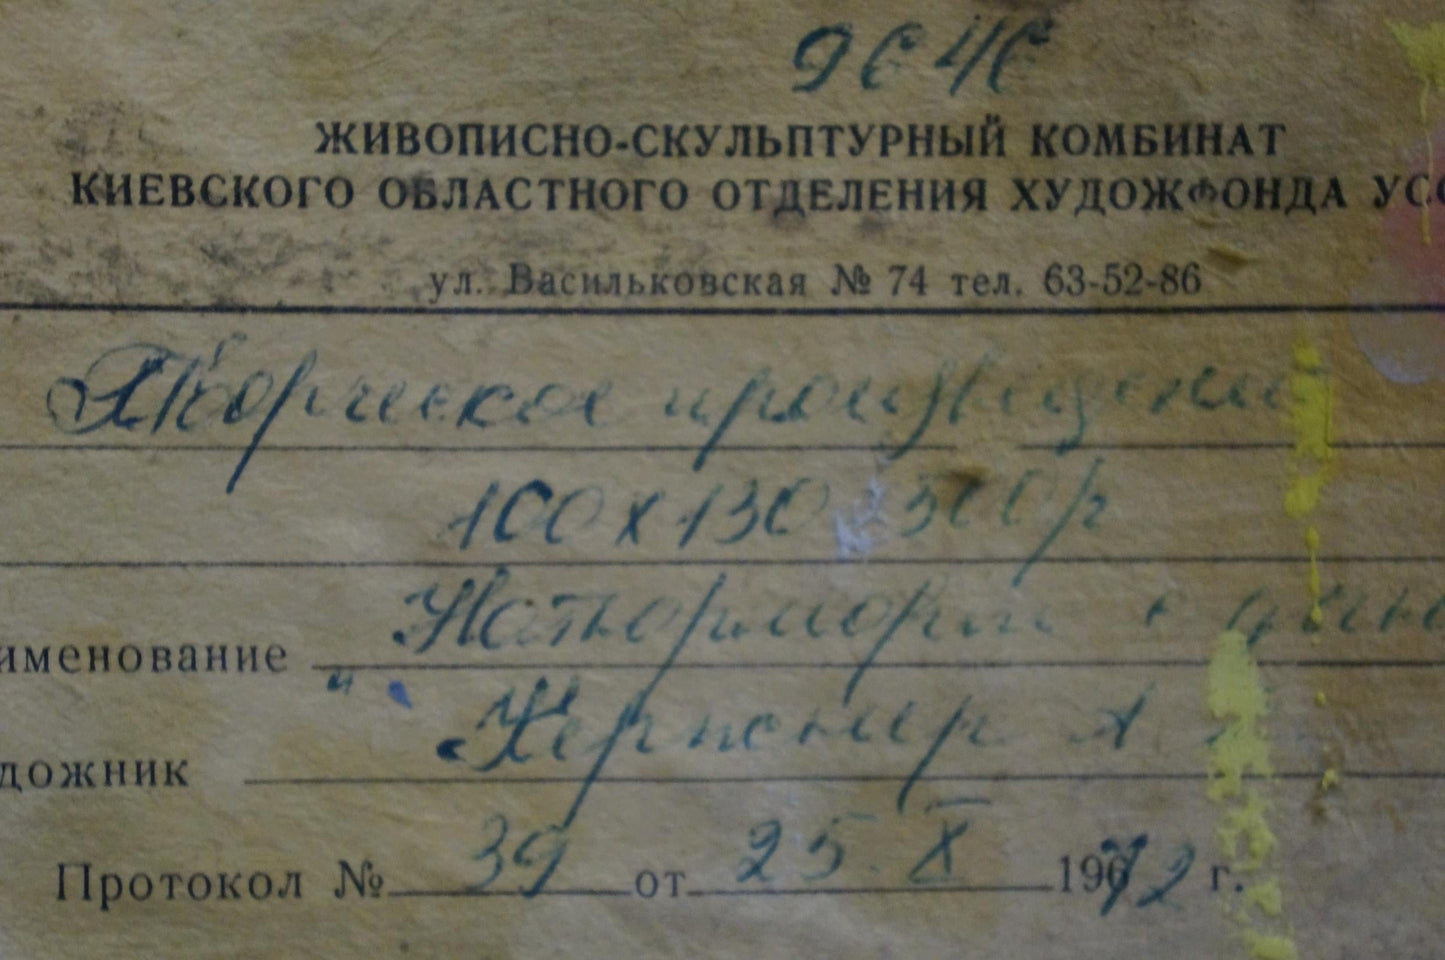 9646
ЖИВОПИСНО-СКУЛЬПТУРНЫЙ КОМБИНАТ
КИЕВСКОГО ОБЛАСТНОГО ОТДЕЛЕНИЯ ХУДОЖФОНДА УСС
ул. Васильковская № 74 тел. 63-52-86
Творческое произведение
100х130 500р
именование Натюрморт с
дожник
Протокол № 39 от 25. X 1972 г.